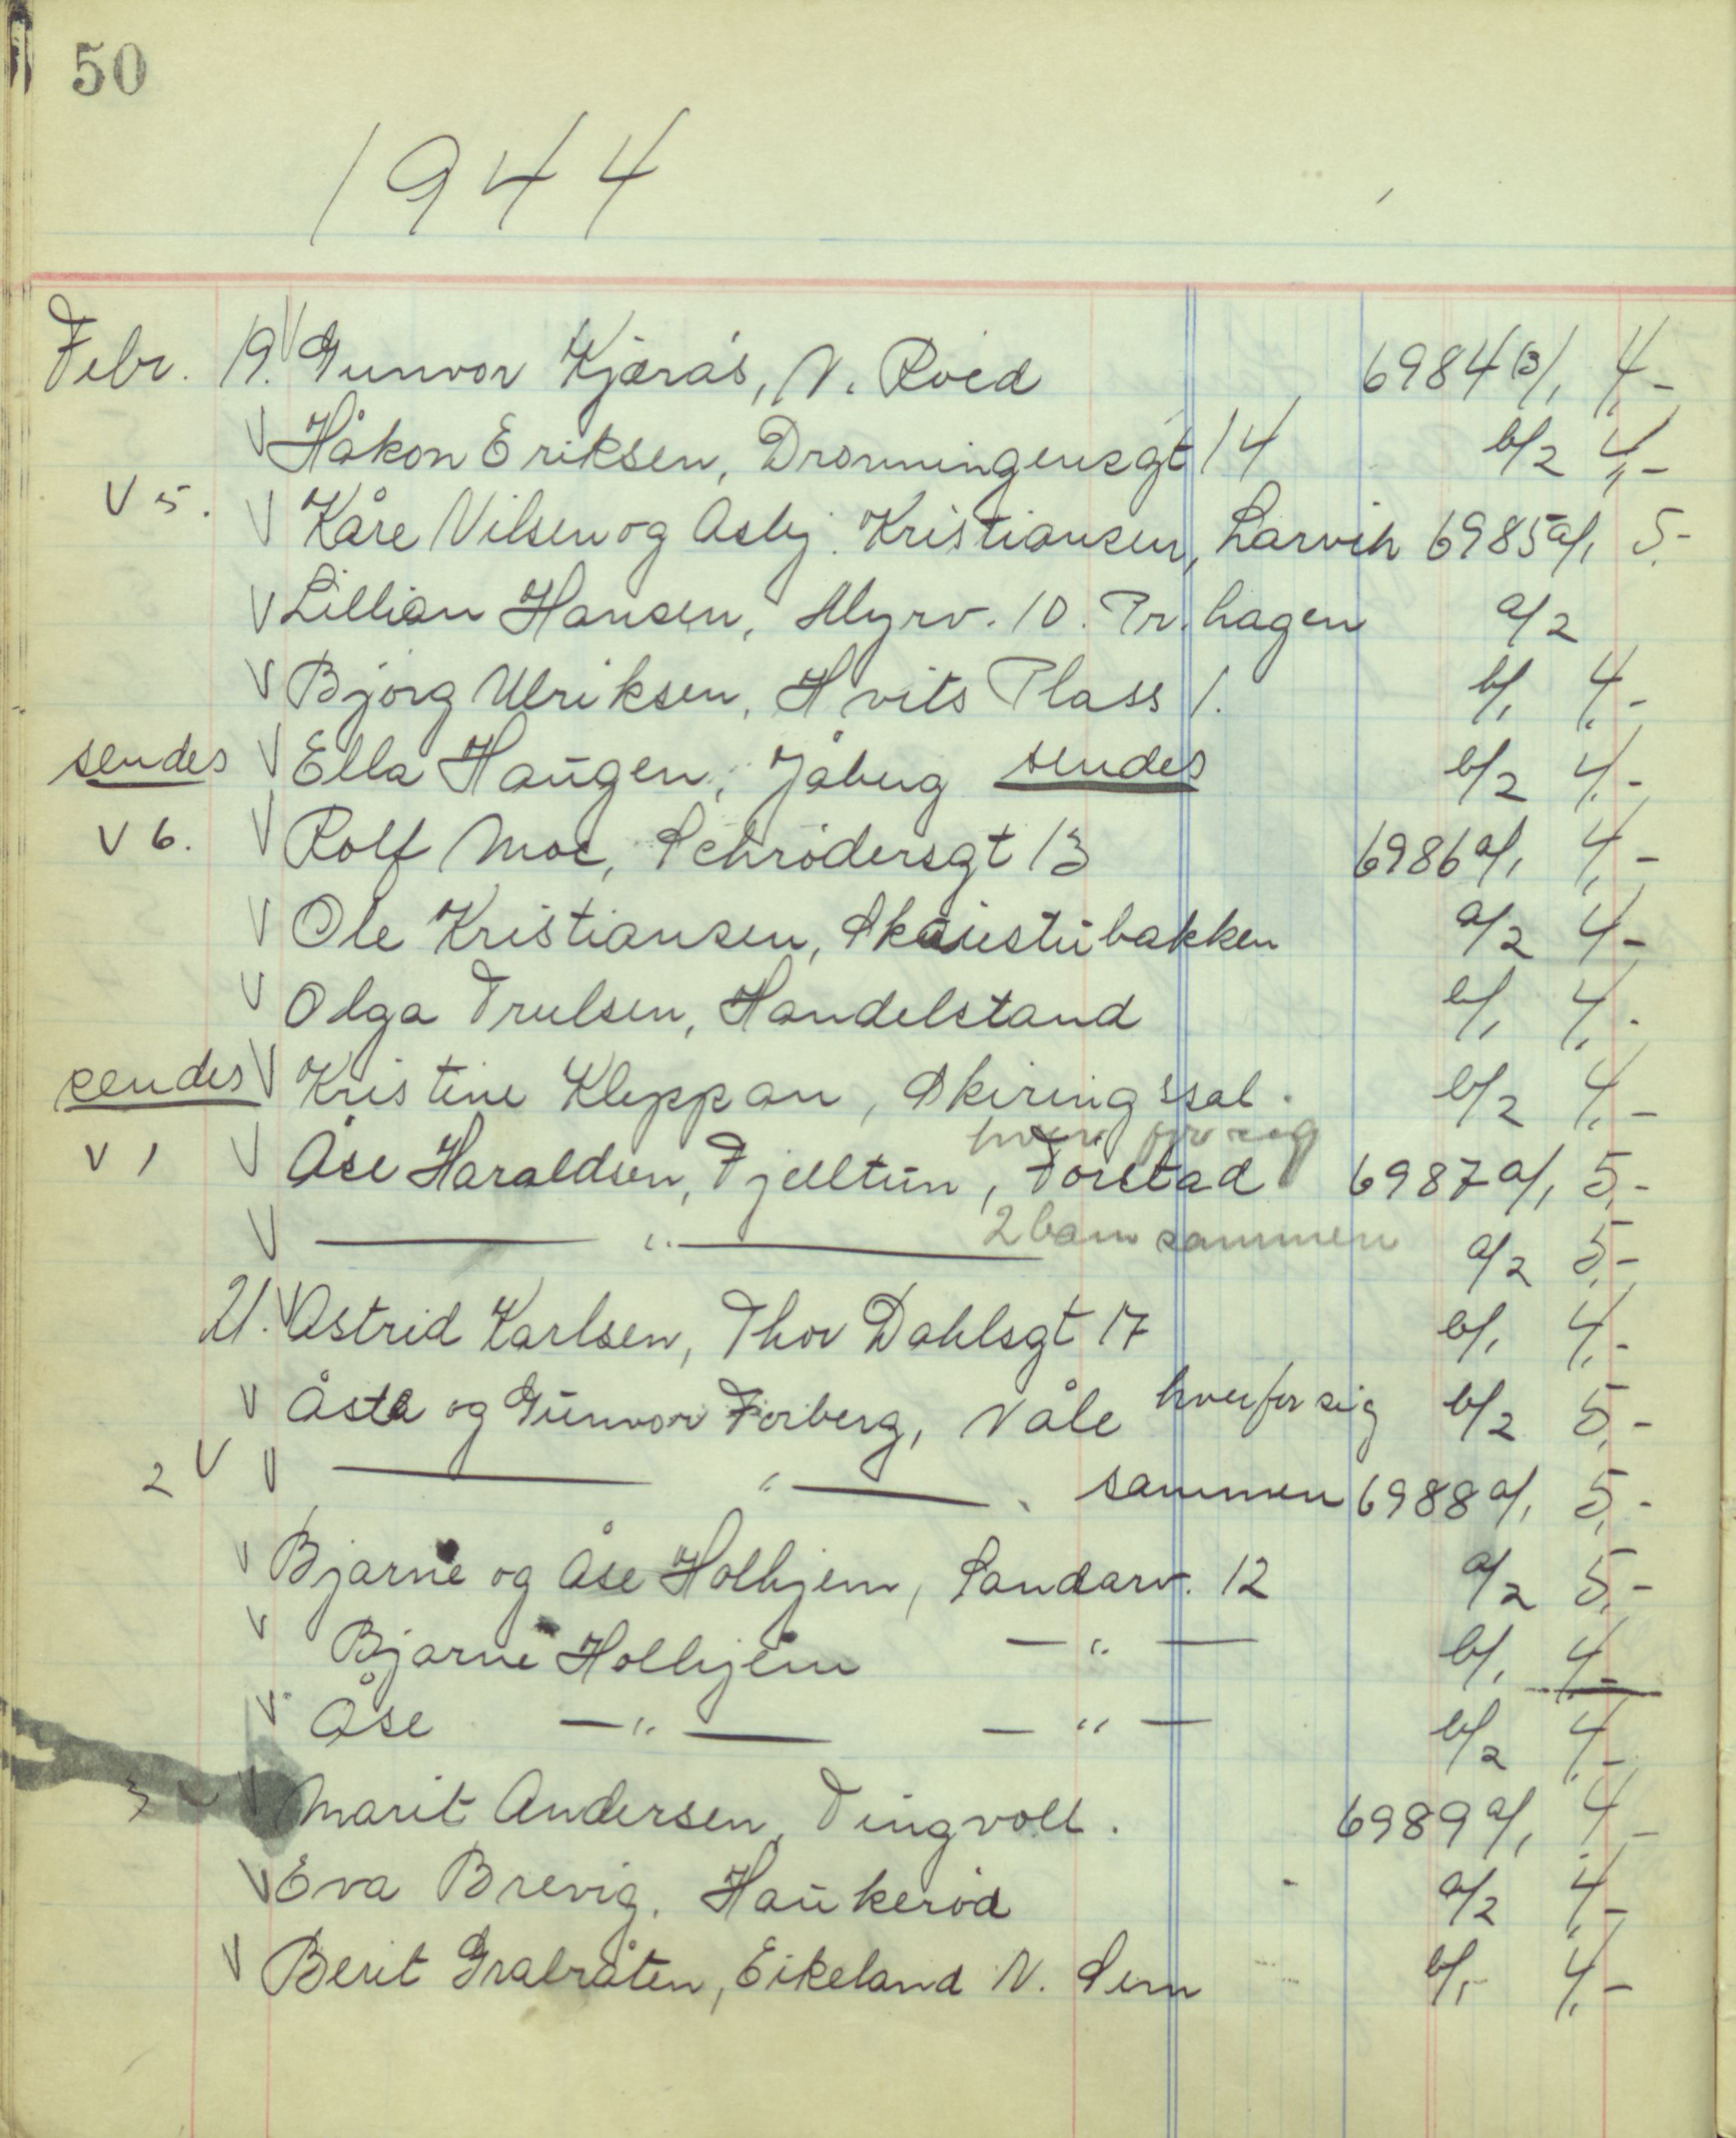 50
1944
Febr. 19. V Gunvor Kjærås, N. Roed 6984 B/1 4,-
V Håkon Eriksen, Dronningensgt 14 b/2 4,-
V 5. V Kåre Nilsen og Asbj. Kristiansen, Larvik 6985 a/1 5,-
V Lillian Hansen, Myrv. 10. Pr. hagen a/2
V Bjørg Ulriksen, Hvits Plass 1. b/1 4,-
sendes V Ella Haugen, Jåberg sendes b/2 4,-
V 6. V Rolf Moe, Schrødersgt 13 6986 a/1 4,-
V Ole Kristiansen, Skaustubakken a/2 4,-
V Olga Trulsen, Handelstand b/1 4,-
sendes V Kristine Kleppan, Skiringssal. b/2 4,-
hver for seg
V 1 V Åse Haraldsen, Fjelltun, 6987 a/1 5,-
V — " — 2 barn sammen a/2 5,-
21. V Astrid Karlsen, Thor Dahlsgt 17 b/1 4,-
V Åsta og Gunvor Forberg, Våle hver for sig b/2 5,-
2 V V — " — sammen 6988 a/1 5,-
V Bjarne og Åse Holhjem, Sandarv. 12 a/2 5,-
V Bjarne Holhjem — " — b/1 4,-
V Åse — " — — " — b/2 4,-
3 V V Marit Andersen, Tingvoll. 6989 a/1 4,-
V Eva Brevig, Haukerød a/2 4,-
V Berit Gralråten, Eikeland N. Sem b/1 4,-